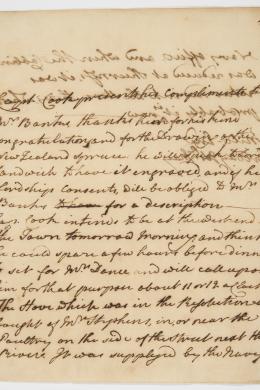 Capt Cook presents his Compliments to
Mr Banks thanks him for his kind
Congratulations and for the Drawing of the
New Zealand spruce he will speak to Lord
Sandwich to have it engraved and if his
Lordships Consents will be obliged to Mr
Banks for a description
Cap Cook intends to be at the west end
of the Town tomorrow Morning and thinks
he could spare a few hours before dinner
to set for Mr Dance and will call upon
him for that purpose about 11 or 12 o'Clock
The Stove which was in the Resolution was
bought of Mr Stephens, in or near the
Poultry on the side of the Street next the
River It was supplyed by the Navy